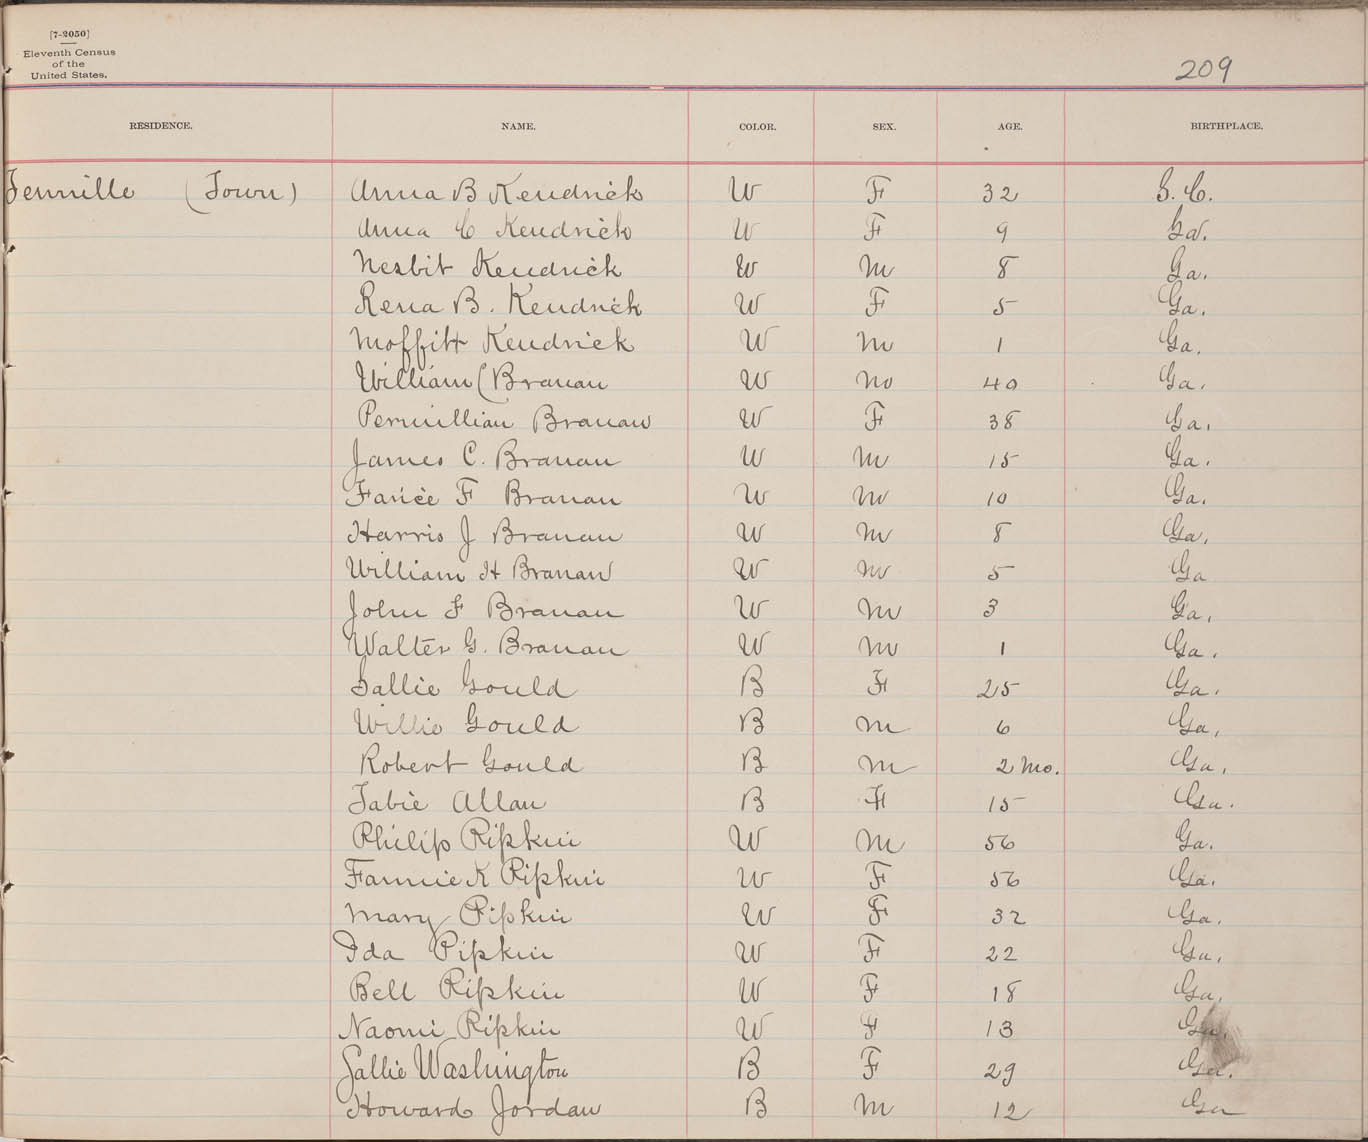 [7-2050]
Eleventh Census
of the
United States.
209
RESIDENCE. NAME. COLOR. SEX. AGE. BIRTHPLACE.
Tennille (Town) Anna B Kendrick W F 32 S. C.
Anna C Kendrick W F 9 Ga.
Nesbit Kendrick W M 8 Ga.
Rena B. Kendrick W F 5 Ga.
Moffitt Kendrick W M 1 Ga.
William C Branan W M 40 Ga.
Permillian Branan W F 38 Ga.
James C. Branan W M 15 Ga.
F Branan W M 10 Ga.
Harris J Branan W M 8 Ga.
William H Branan W M 5 Ga
John F Branan W M 3 Ga.
Walter G. Branan W M 1 Ga.
Sallie Gould B F 25 Ga.
Willie Gould B M 6 Ga.
Robert Gould B M 2 Mo. Ga.
Tabie Allan B F 15 Ga.
Philip Pipkin W M 56 Ga.
Fannie K Pipkin W F 56 Ga.
Mary Pipkin W F 32 Ga.
Ida Pipkin W F 22 Ga.
Bell Pipkin W F 18 Ga.
Naomi Pipkin W F 13 Ga.
Sallie Washington B F 29 Ga.
Howard Jordan B M 12 Ga